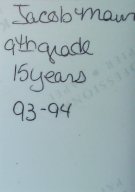 Jacob Maun
9th grade
15 years
93-94